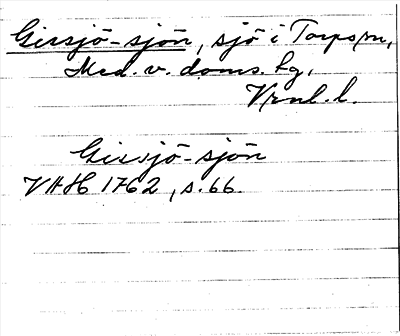 Gissjö-sjön, sjö i Torps sn,
Med. v. doms. hg,
Vrnl. l.
Gissjö-sjön
VAH 1762, s. 66.